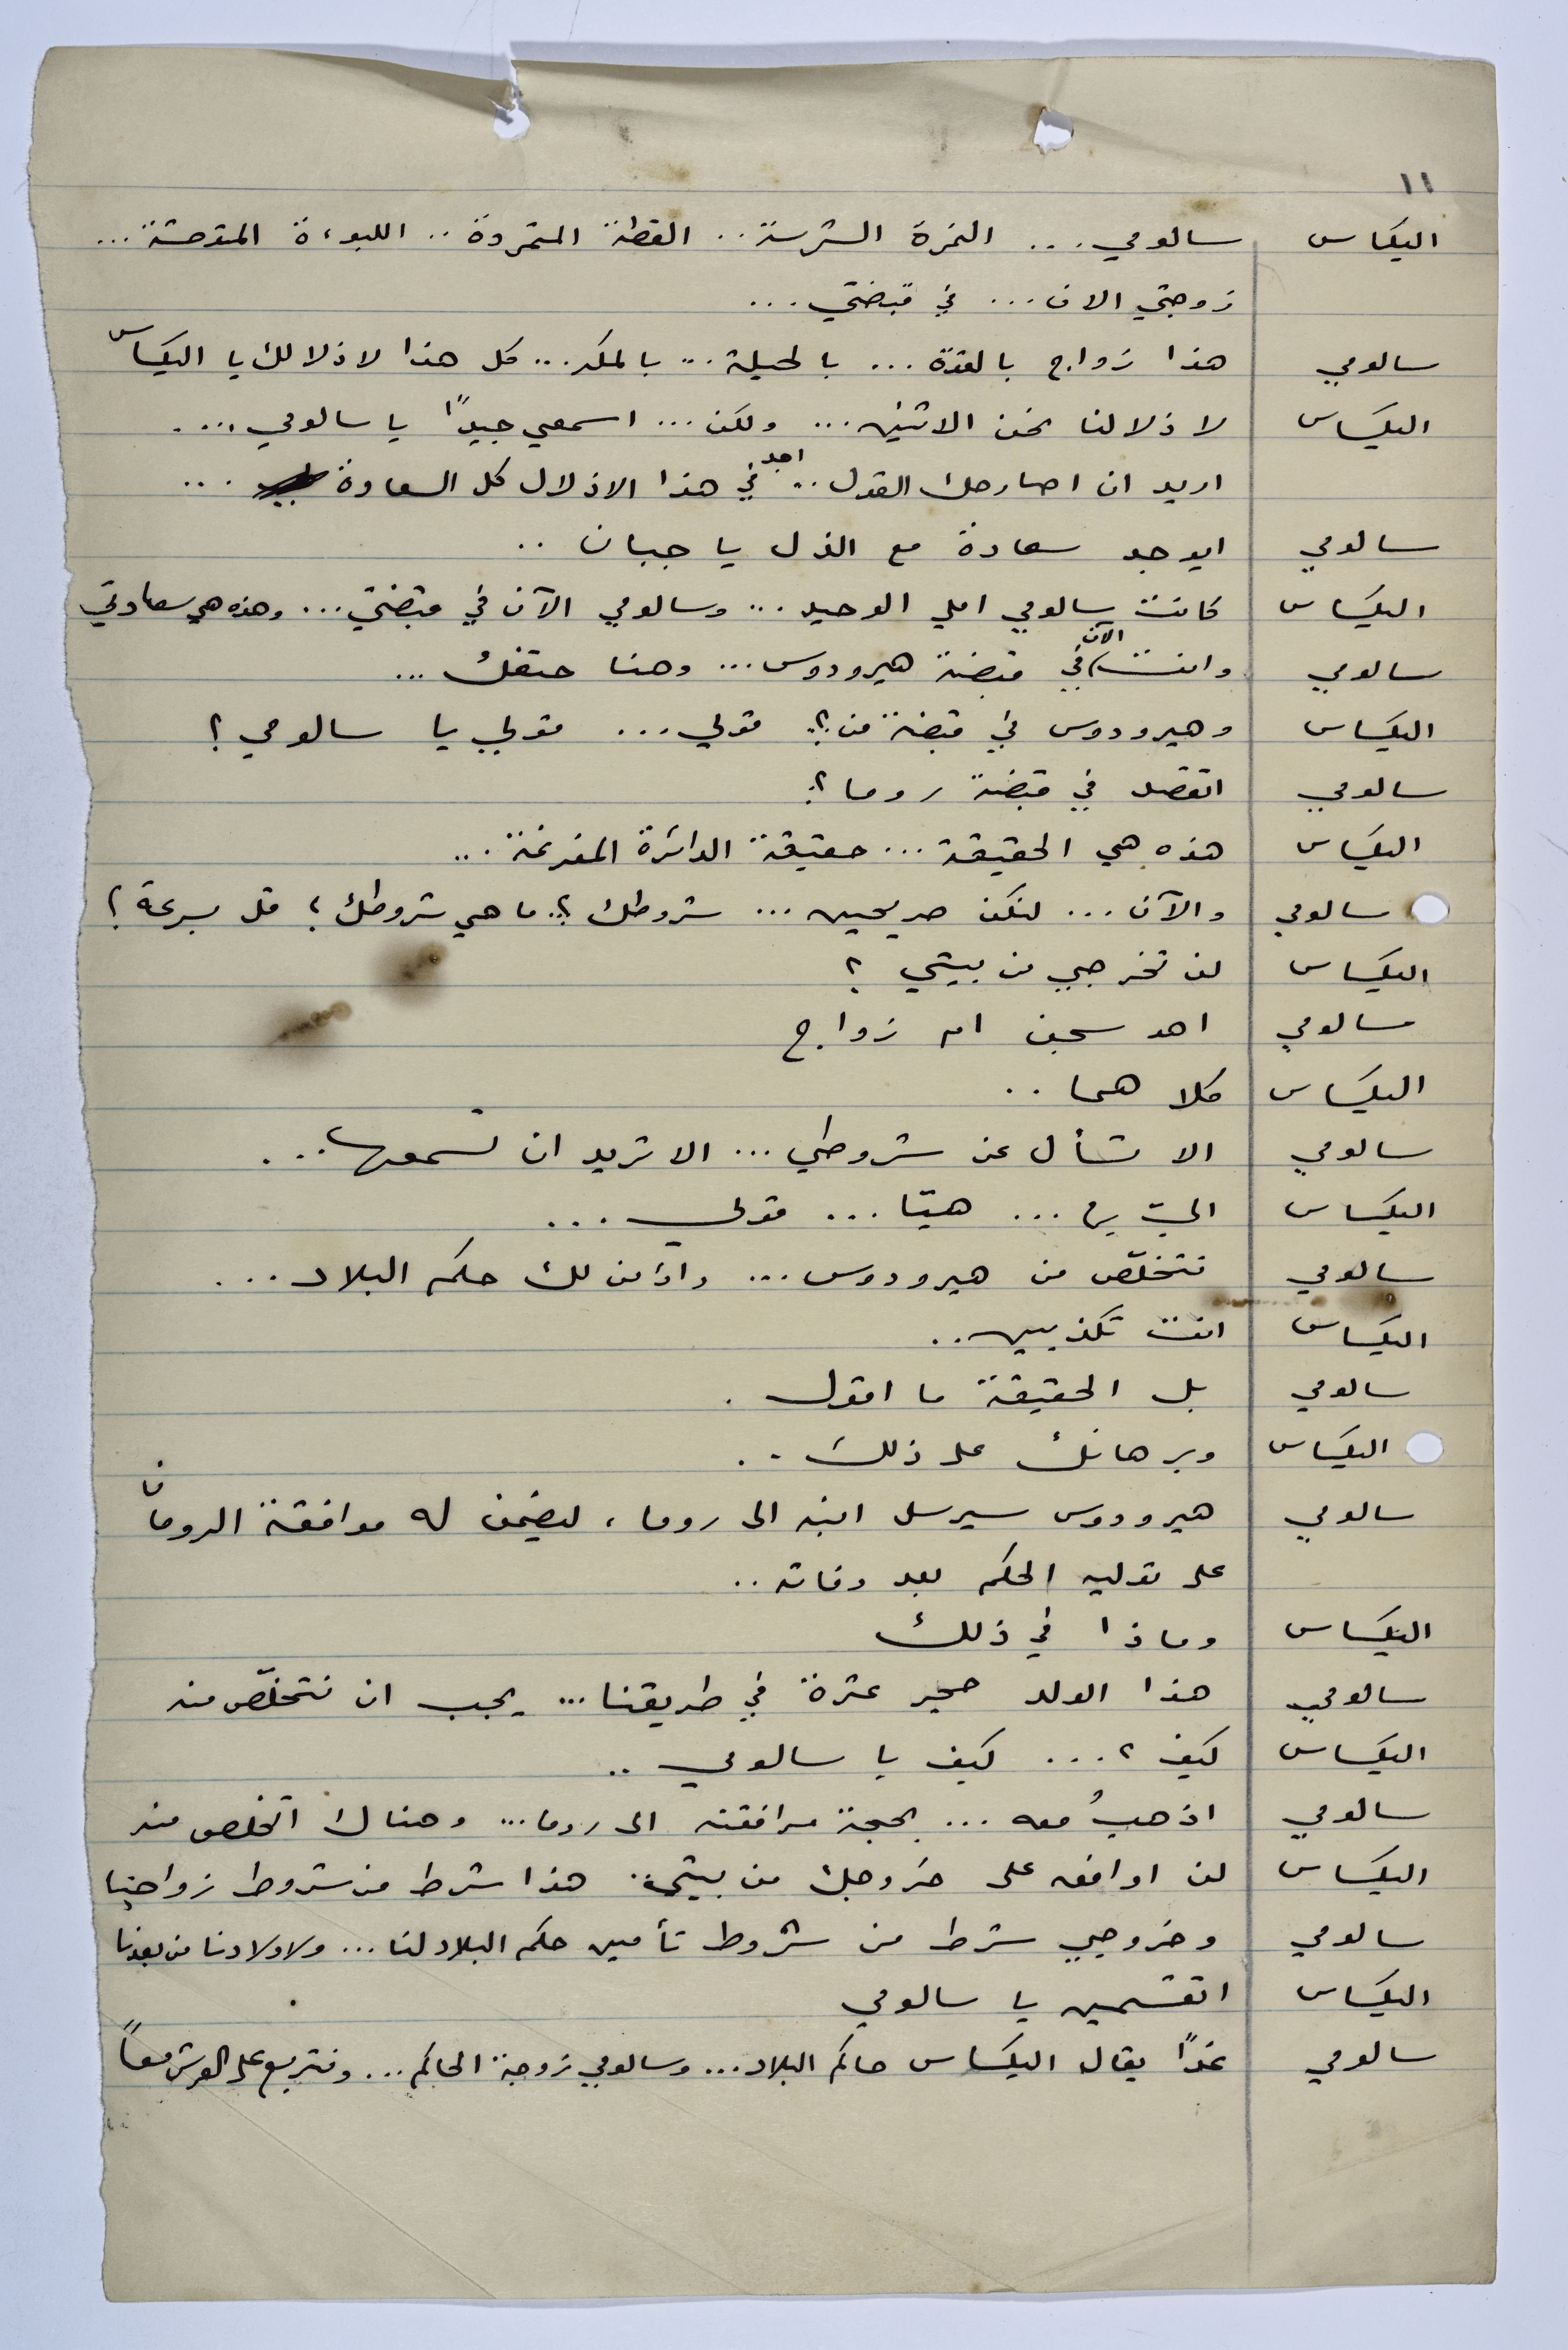 ١١
اليكساس سالومي... النمرة الشرسة.. القطة المتمردة.. اللبوءة المتوحشة...
زوجتي الان... في قبضتي...
سالومي هذا زواج بالقوة... بالحيلة... بالمكر... كل هذا لاذلالك يا اليكساس
اليكساس لاذلالنا نحن الاثنين... ولكن... اسمعي جيدًا يا سالومي....
اريد ان اصارحك القول... اجد في هذا الاذلال كل السعادة ...
سالومي ايوجد سعادة مع الذل يا جبان ..
اليكساس كانت سالومي املي الوحيد... وسالومي الآن في قبضتي... وهذه هي سعادتي
سالومي وانت الآن في قبضة هيرودوس... وهنا حتفك...
اليكساس وهيرودوس في قبضة من؟. قولي... قولي يا سالومي؟
سالومي اتقصد في قبضة روما؟.
اليكساس هذه هي الحقيقة... حقيقة الدائرة المفرغة...
سالومي والآن... لنكن صريحين... شروطك؟. ما هي شروطك؟ قل بسرعة؟
اليكساس لن تخرجي من بيتي؟
سالومي اهو سجن ام زواج
اليكساس كلاهما..
سالومي الا تسأل عن شروطي... الا تريد ان تسمعها...
اليكساس اليّ بها... هيّا... قولي...
سالومي نتخلّص من هيرودوس... واؤمن لك حكم البلاد...
اليكساس انت تكذبين..
سالومي بل الحقيقة ما اقول.
اليكساس وبرهانك على ذلك..
سالومي هيرودوس سيرسل ابنه الى روما، ليضمن له موافقة الرومان
على توليه الحكم بعد وفاته..
اليكساس وماذا في ذلك
سالومي هذا الولد حجر عثرة في طريقنا... يجب ان نتخلّص منه
اليكساس كيف؟... كيف يا سالومي..
سالومي اذهبُ معه... بحجة مرافقته الى روما... وهناك اتخلص منه
اليكساس لن اوافق على خروجك من بيتي.. هذا شرط من شروط زواجنا
سالومي وخروجي شرط من شروط تأمين حكم البلاد لنا... ولاولادنا من بعدنا
اليكساس اتقسمين يا سالومي
سالومي غدًا يقال اليكساس حاكم البلاد... وسالومي زوجة الحاكم... ونتربع على العرش معاً